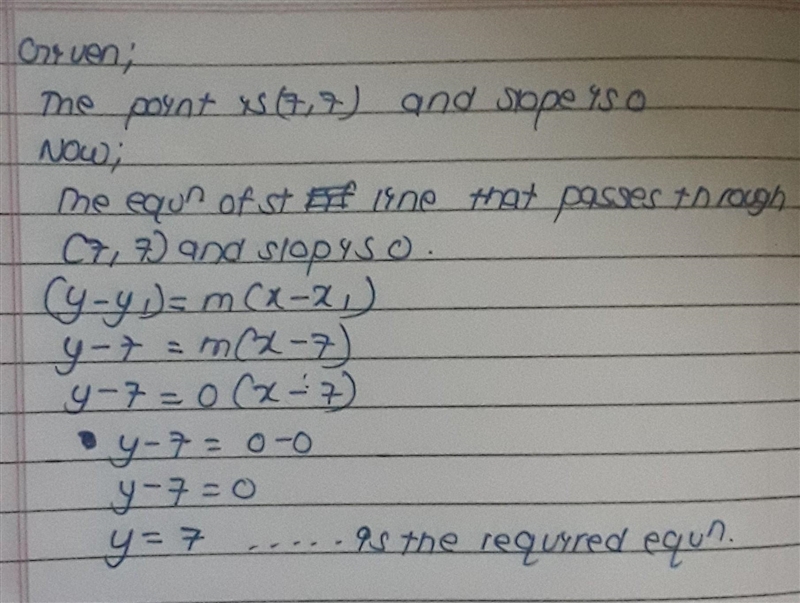 Given;
The point is (7,7) and slope is 0
Now;
The equn of st line that passes through
(7, 7) and slop is 0.
(y-y₁) = m(x-x₁)
y-7 = m(x-7)
y-7 = 0 (x-7)
y-7 = 0-0
y-7 = 0
y = 7 ...... is the required equn.